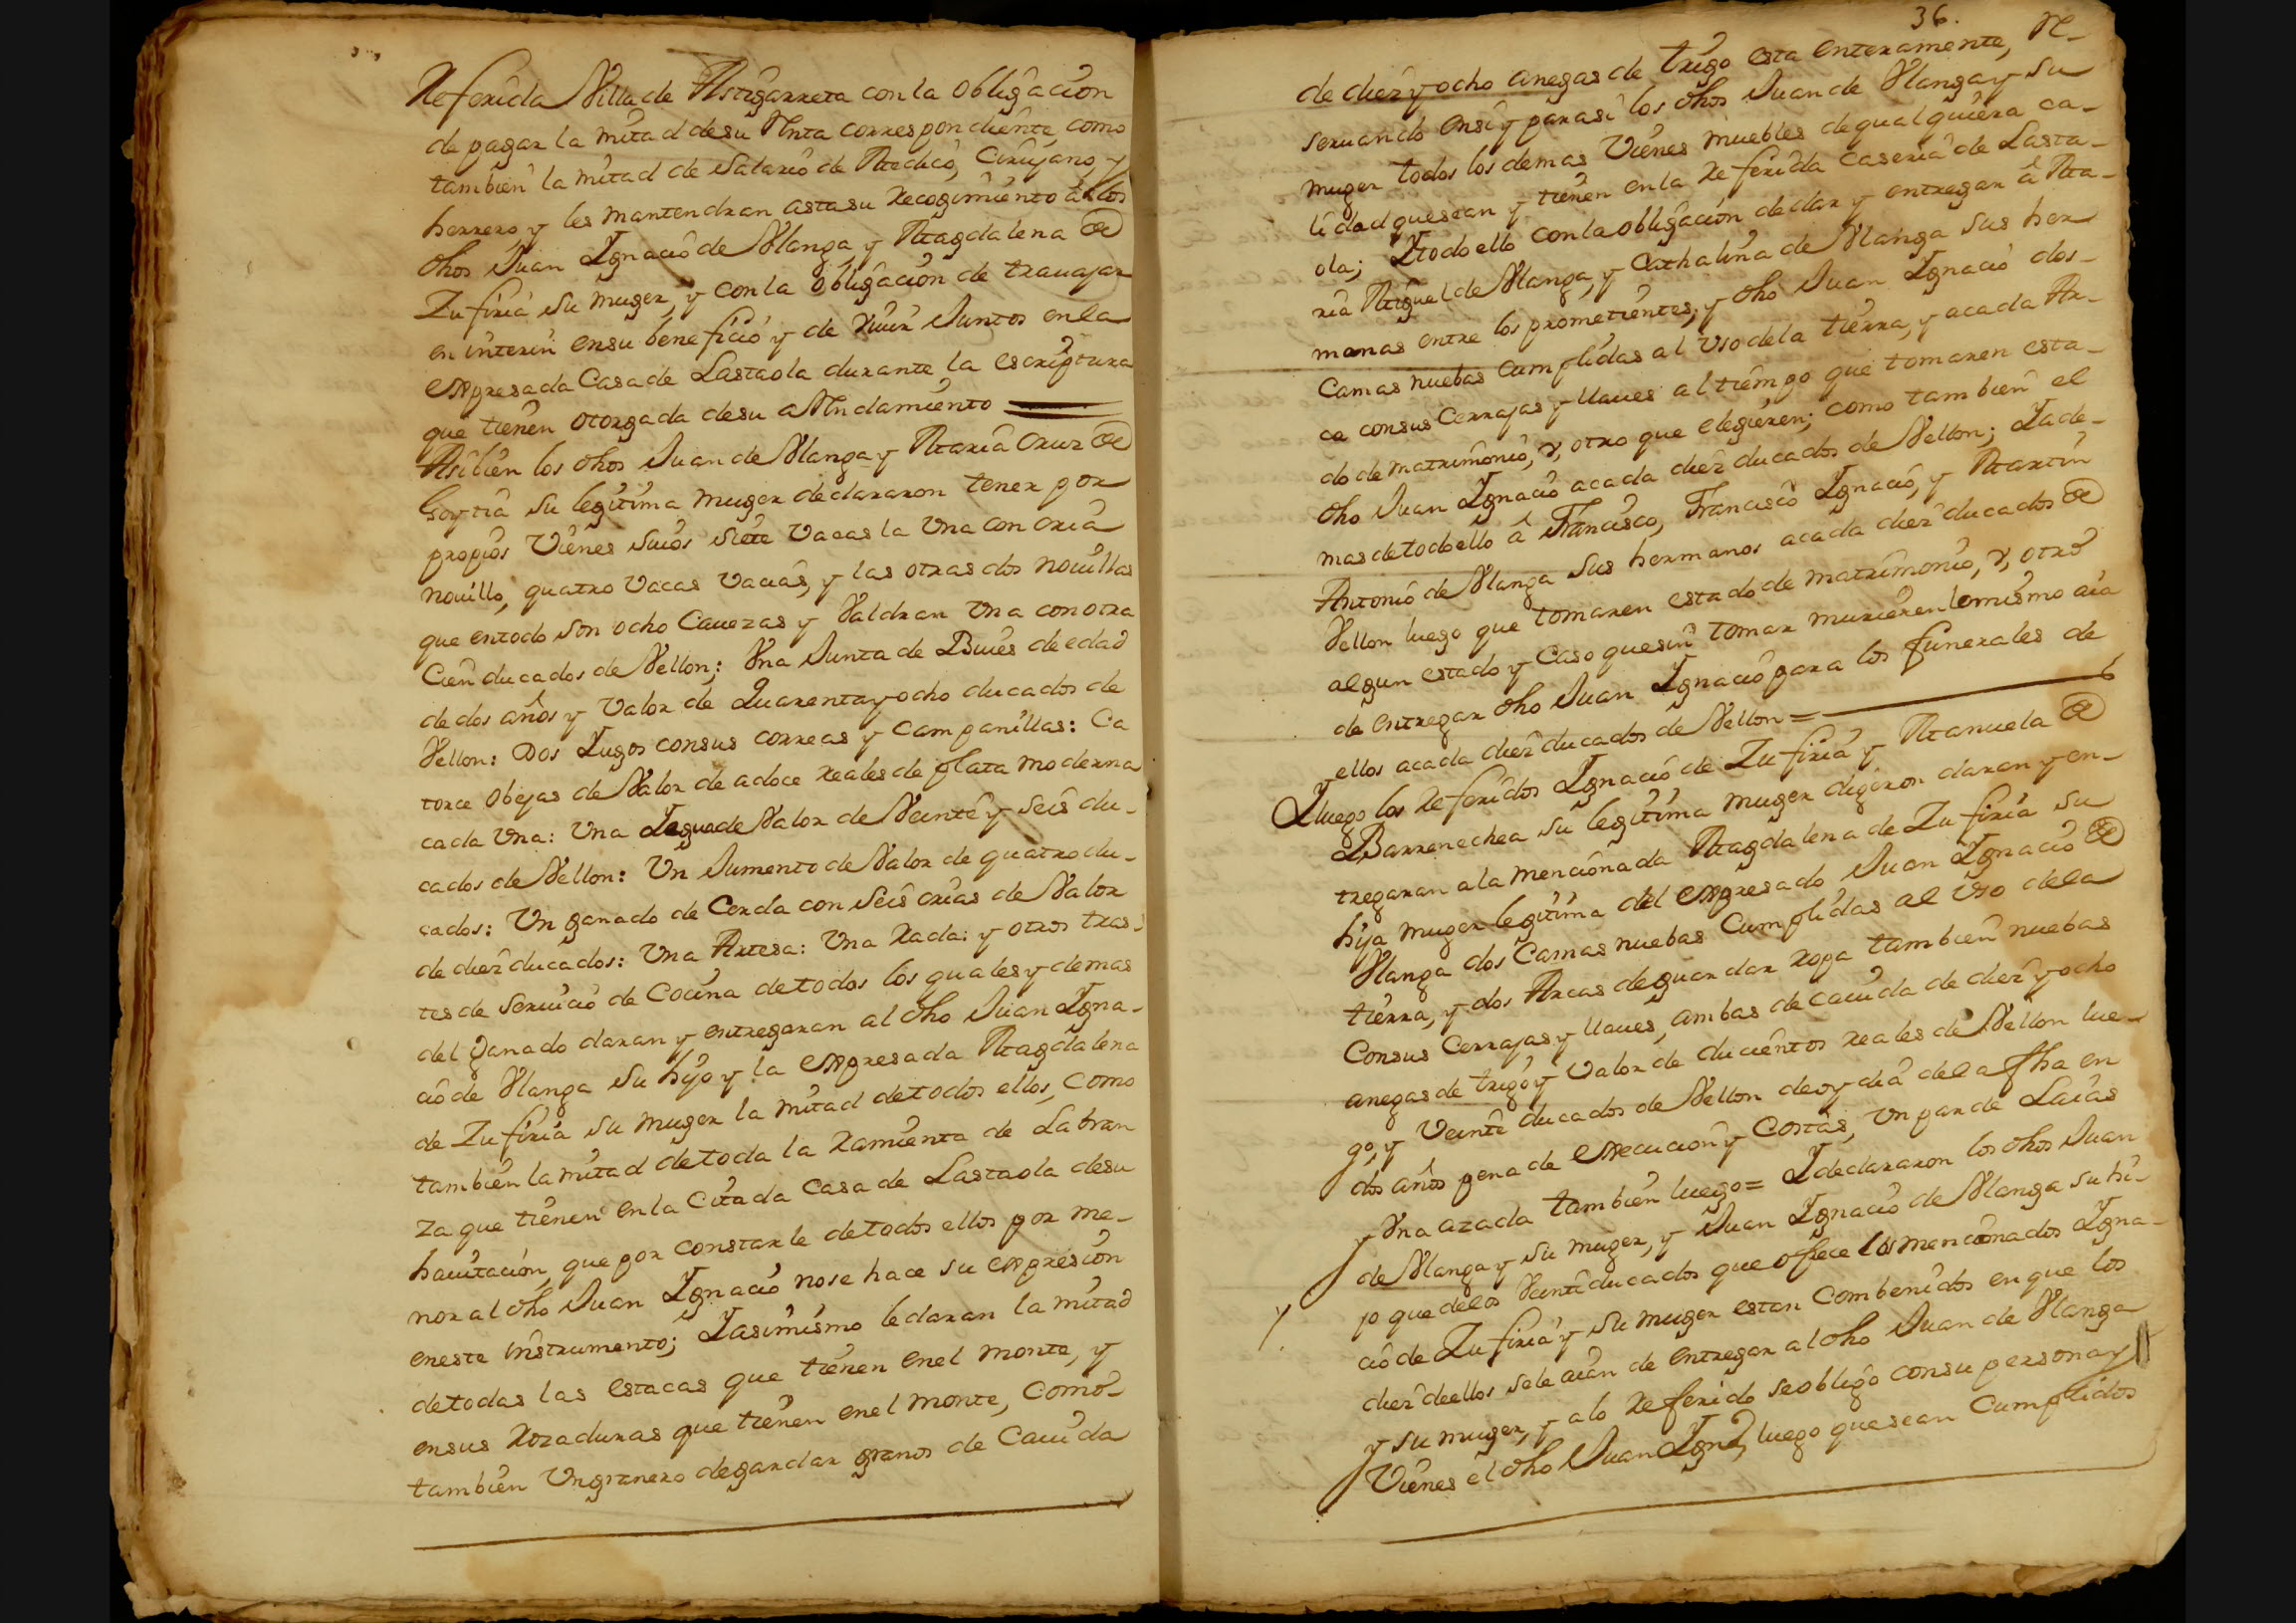 Referida Villa de Astigarreta con la obligacion
de pagar la mitad desu Rnta correspondiente, como
tambien la mitad de salario de Medico, Cirujano, y
herrero, y les mantendran asta su Recogimiento â los
dhos Juan Ignacio de Vlanga y Magdalena de
Zufiria su muger, y con la obligacion de trauajar
en interin ensu beneficio y de viuir Juntos enla
expresada Casa de Lastaola durante la escriptura
que tienen otorgada desu aRndamiento
Asibien los dhos Juan de Vlanga y Maria Cruz de
Goytia su legitima muger declararon tener por
propios Vienes suios siete Vacas la Una con cria
nouillo, quatro Vacas Vacias, y las otras dos nouillas
que entodo son ocho Cauezas y Valdran Una con otra
Cien ducados de Vellon; Vna Junta de Buies de edad
de dos años y Valor de Quarenta y ocho ducados de
Vellon: Dos Iugos consus correas y Campanillas: Ca
torce obejas de Valor de adoce reales de plata moderna
cada Una: Una Iegua de Valor de Veinte y seis du-
cados de Vellon: Un Jumento de Valor de quatro du-
cados: Un ganado de Cerda con seis crias de Valor
de diez ducados: Una Artesa: Una Rada: y otros tras-
tes de seruicio de Cocina de todos los quales y demas
del ganado daran y entregaran al dho Juan Igna-
cio de Vlanga su hijo y la expresada Magdalena
de Zufiria su muger la mitad de todos ellos, como
tambien la mitad de toda la Ramienta de Labran
za que tienen enla Citada Casa de Lastaola desu
hauitacion, que por constarle de todos ellos por me-
nor al dho Juan Ignacio nose hace su expresion
eneste instrumento; Iasimismo le daran la mitad
de todas las estacas que tienen enel monte, y
ensus Rozaduras que tienen enel monte, como
tambien Un granero de gardar granos de Cauida
36.
de diez y ocho anegas de trigo esta enteramente, Re-
seruando ensi y parasi los dhos Juan de Vlanga y su
muger todos los demas Vienes muebles de qualquiera ca-
lidad que sean y tienen enla Referida caseria de Lasta-
ola; Itodo ello con la obligacion de dar y entregar â Ma-
ria Miguel de Vlanga, y Cathalina de Vlanga sus her
manas entre los prometientes, y dho Juan Ignacio dos-
Camas nuebas Cumplidas al Uso dela tierra, y acada Ar-
ca consus Cerrajas y llaues al tiempo que tomaren esta-
do de matrimonio, v, otro que eligieren; como tambien el
dho Juan Ignacio acada diez ducados de Vellon; Iade-
mas de todo ello â Francisco, Francisco Ignacio, y Martin
Antonio de Vlanga sus hermanos acada diez ducados de
Vellon luego que tomaren estado de matrimonio, v, otro
algun estado y Caso que sin tomar murieren lo mismo aia
de entregar dho Juan Ignacio para los funerales de
ellos acada diez ducados de Vellon =
Iluego los Referidos Ignacio de Zufiria y Manuela de
Barrenechea su legitima muger digeron daran y en-
tregaran ala mencionada Magdalena de Zufiria su
hija muger legitima del expresado Juan Ignacio de
Vlanga dos Camas nuebas Cumplidas al Uso dela
tierra, y dos Arcas de guardar ropa tambien nuebas
Consus Cerrajas y llaues, ambas de cauida de diez y ocho
anegas de trigo y Valor de ducientos reales de Vellon lue-
go, y Veinte ducados de Vellon de oy dia dela fha en
dos años pena de execucion y Costas, Un par de Laias
y Vna azada tambien luego = Ideclararon los dhos Juan
de Vlanga y su muger, y Juan Ignacio de Vlanga su hi-
jo que delos Veinte ducados que ofrece los mencionados Igna-
cio de Zufiria y su muger estan Combenidos en que los
diez de ellos sele aian de entregar al dho Juan de Vlanga
y su muger, y alo Referido se obligo consu persona y
Vienes el dho Juan Ignº luego que sean Cumplidos